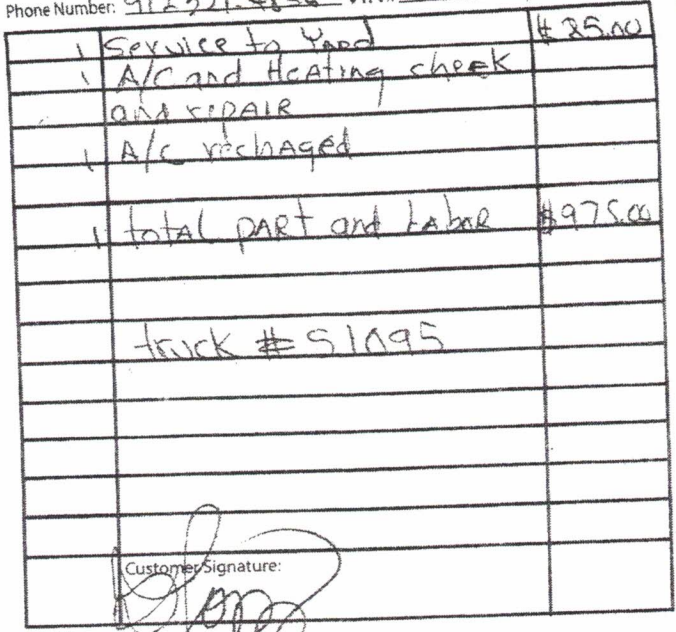 Phone Number: 912
1 Service to Yard $ 85.00
1 A/C and Heating check
and repair
1 A/C rechaged
1 total part and Labar $975.00
truck # S1095
Customer Signature: